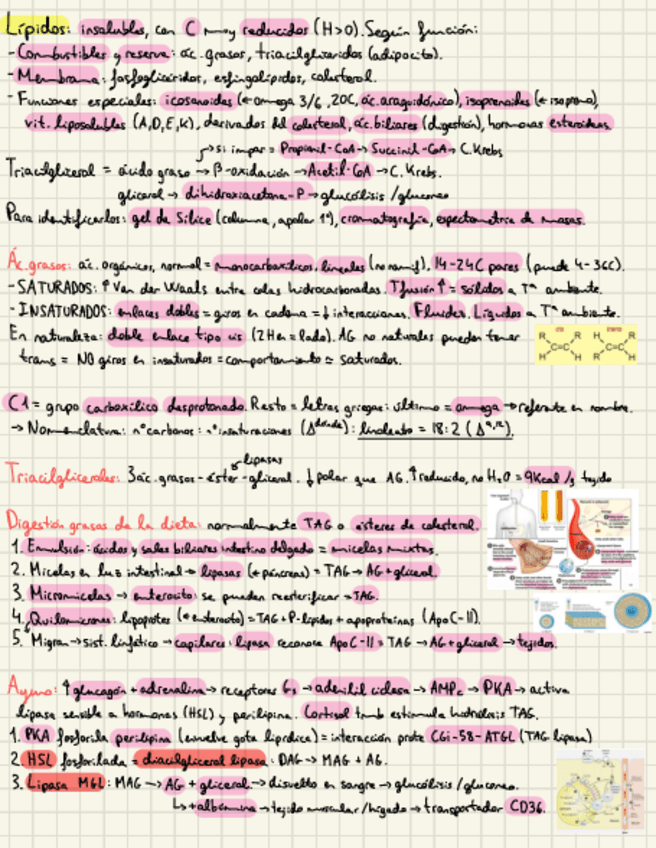 Lípidos: insolubles, con C muy reducidos (H>0). Según función:
- Combustibles y reserva: ác. grasos, triacilglicéridos (adipocito).
- Membrana: fosfoglicéridos, esfingolípidos, colesterol.
- Funciones especiales: icosanoides (← omega 3/6, 20C, ác. araquidónico), isoprenoides (← isopreno),
vit. liposolubles (A, D, E, K), derivados del colesterol, ác. biliares (digestión), hormonas esteroideas.
→ si impar = Propionil-CoA → Succinil-CoA → C. Krebs
Triacilglicerol = ácido graso → β-oxidación → Acetil-CoA → C. Krebs.
glicerol → dihidroxiacetona-P → glucólisis / gluconeo
Para identificarlos: gel de Sílice (columna, apolar 1º), cromatografía, espectometría de masas.
Ác. grasos: ác. orgánicos, normal = monocarboxílicos, lineales (no ramif), 14-24C pares (puede 4-36C).
- SATURADOS: ↑ Van der Waals entre colas hidrocarbonadas. Tfusión ↑ = sólidos a Tª ambiente.
- INSATURADOS: enlaces dobles = giros en cadena = ↓ interacciones. Fluidez. Líquidos a Tª ambiente.
En naturaleza: doble enlace tipo cis (2H en = lado). AG no naturales pueden tener
trans = NO giros en insaturados = comportamiento ≈ saturados.
C1 = grupo carboxílico desprotonado. Resto = letras griegas: último = omega → referente en nombre.
→ Nomenclatura: nº carbonos: nº insaturaciones (Δ dónde): linoleato = 18:2 (Δ 9,12).
lipasas
Triacilgliceroles: 3 ác. grasos - éster - glicerol. ↓ polar que AG. ↑ reducido, no H2O = 9Kcal/g tejido
Digestión grasas de la dieta: normalmente TAG o ésteres de colesterol.
1. Emulsión: ácidos y sales biliares intestino delgado = micelas mixtas.
2. Micelas en luz intestinal → lipasas (← páncreas) = TAG → AG + glicerol.
3. Micromicelas → enterocito: se pueden reesterificar = TAG.
4. Quilomicrones: lipoprotes (← enterocito) = TAG + P-lípidos + apoproteínas (ApoC-II).
5. Migran → sist. linfático → capilares: lipasa reconoce ApoC-II = TAG → AG + glicerol → tejidos.
Ayuno: ↑ glucagón + adrenalina → receptores Gs → adenilil ciclasa → AMPc → PKA → activa
lipasa sensible a hormonas (HSL) y perilipina. Cortisol tmb estimula hidrólisis TAG.
1. PKA fosforila perilipina (envuelve gota lipídica) = interacción prote CGi-58-ATGL (TAG lipasa)
2. HSL fosforilada = diacilglicerol lipasa: DAG → MAG + AG.
3. Lipasa MGL: MAG → AG + glicerol → disuelto en sangre → glucólisis / gluconeo.
↳ + albúmina → tejido muscular / hígado → transportador CD36.